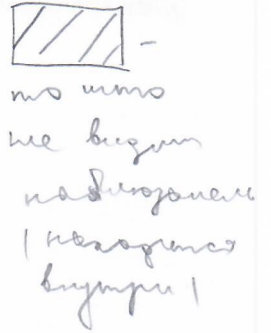 –
то што
не видит
наблюдатель
(находится
внутри)